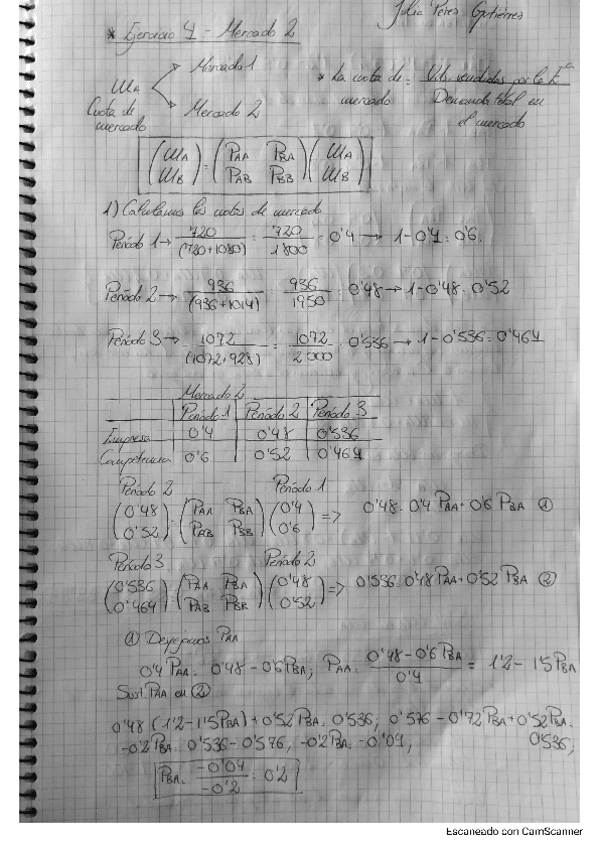 Julia Peres Gutiérres
* Ejercicio 4 - Mercado 2
Mercado 1
MA
Mercado 2
Cuota de
mercado
* La cuota de = Uds. vendidas por la Eª
mercado Demanda total en
el mercado
(MA MB) = (PAA PBA PAB PBB) (MA MB)
1) Calculamos las cuotas de mercado
Período 1 → 720/(720+1080) = 720/1800 = 0'4 → 1-0'4 = 0'6.
Período 2 → 936/(936+1014) = 936/1950 = 0'48 → 1-0'48 = 0'52
Período 3 → 1072/(1072+928) = 1072/2000 = 0'536 → 1-0'536 = 0'464
Mercado 2
Período 1 Período 2 Período 3
Empresa 0'4 0'48 0'536
Competencia 0'6 0'52 0'464
Período 2 Período 1
(0'48 0'52) = (PAA PBA PAB PBB) (0'4 0'6) => 0'48 = 0'4 PAA + 0'6 PBA ①
Período 3 Período 2
(0'536 0'464) = (PAA PBA PAB PBB) (0'48 0'52) => 0'536 = 0'48 PAA + 0'52 PBA ②
① Despejamos PAA
0'4 PAA = 0'48 - 0'6 PBA; PAA = 0'48 - 0'6 PBA / 0'4 = 1'2 - 1'5 PBA
Sust. PAA en ②
0'48 (1'2 - 1'5 PBA) + 0'52 PBA = 0'536; 0'576 - 0'72 PBA + 0'52 PBA =
0'536;
-0'2 PBA = 0'536 - 0'576; -0'2 PBA = -0'04;
PBA = -0'04 / -0'2 = 0'2
Escaneado con CamScanner